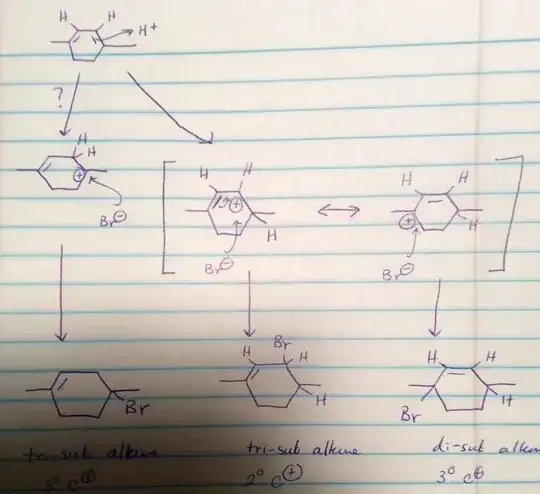 H H
H⁺
?
H
H
⊕
Br⊖
H H
⊕
H
Br⊖
H H
⊕
H
Br⊖
Br
H Br H
H
H H
Br H
tri-sub alkene tri-sub alkene di-sub alken
3° C⊕ 2° C⊕ 3° C⊕